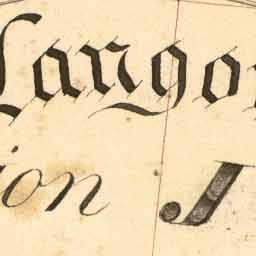 Lango
ion J